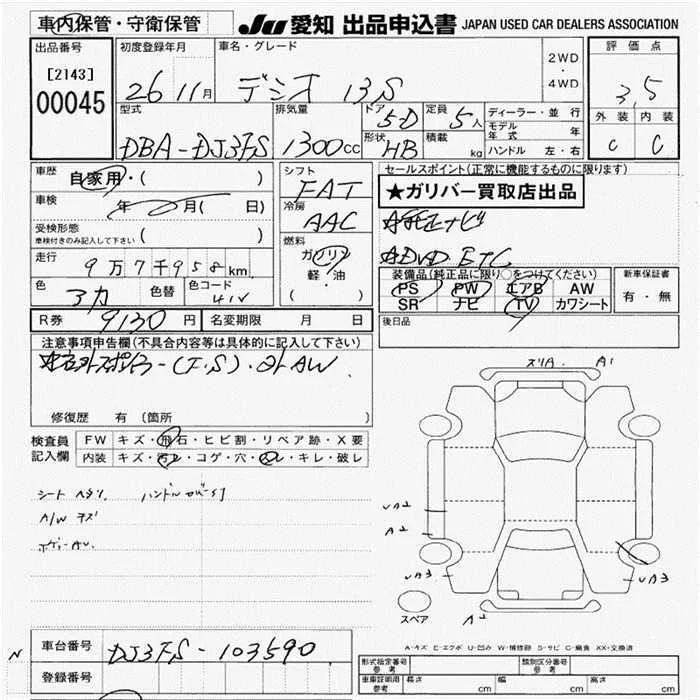 車内保管・守衛保管
JU 愛知 出品申込書 JAPAN USED CAR DEALERS ASSOCIATION
出品番号 初度登録年月 車名・グレード 2WD・4WD 評価点
[2143]
00045
26 11月 デミオ 13S 3,5
型式 排気量 ドア 5-D 定員 5人 ディーラー・並行 外装 内装
DBA-DJ3FS 1300cc 形状 HB 積載 kg モデル年式 年 C C
ハンドル 左・右
車歴 自家用・( ) シフト FAT セールスポイント(正常に機能するものに限ります)
★ガリバー買取店出品
車検 年 月( 日) 冷房 AAC
受検形態 ( )
車検付きのみ記入して下さい
燃料 ガソリン
軽・油
( )
走行 9万7千958km
色 色替 色コード 41V
ADVD. ETC
装備品(純正品に限り○をつけてください) 新車保証書
PS PW エアB AW 有・無
SR ナビ TV カワシート
R券 9130円 名変期限 月 日 後日品
注意事項申告欄(不具合内容等は具体的に記入して下さい)
修復歴 有 (箇所
検査員記入欄 FW キズ・飛石・ヒビ割・リペア跡・X要
内装 キズ・汚レ・コゲ・穴・スレ・キレ・破レ
シート ヘタリ. ハンドル
A/W キズ
スリA. A1
UA2
A2
UA3
UA3
A2
スペア
A-キズ E-エクボ U-凹み W-補修跡 S-サビ C-腐食 XX-交換済
N 車台番号 DJ3FS-103590
登録番号
形式指定番号 参考 類別区分番号 参考
車庫証明用 参考 長さ cm 幅 cm 高さ cm